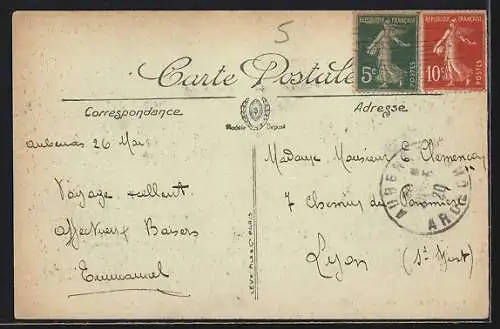 5
REPUBLIQUE FRANÇAISE
5c
POSTES
REPUBLIQUE FRANÇAISE
10c
POSTES
Carte Postale
Correspondance
Adresse
Modèle Déposé
AUBENAS
20
ARDÈCHE
Aubenas 26 Mai
Voyage excellent
Affectueux Baisers
Emmanuel
Madame Monsieur Clemençon
7 Chemin de
Lyon (St Just)